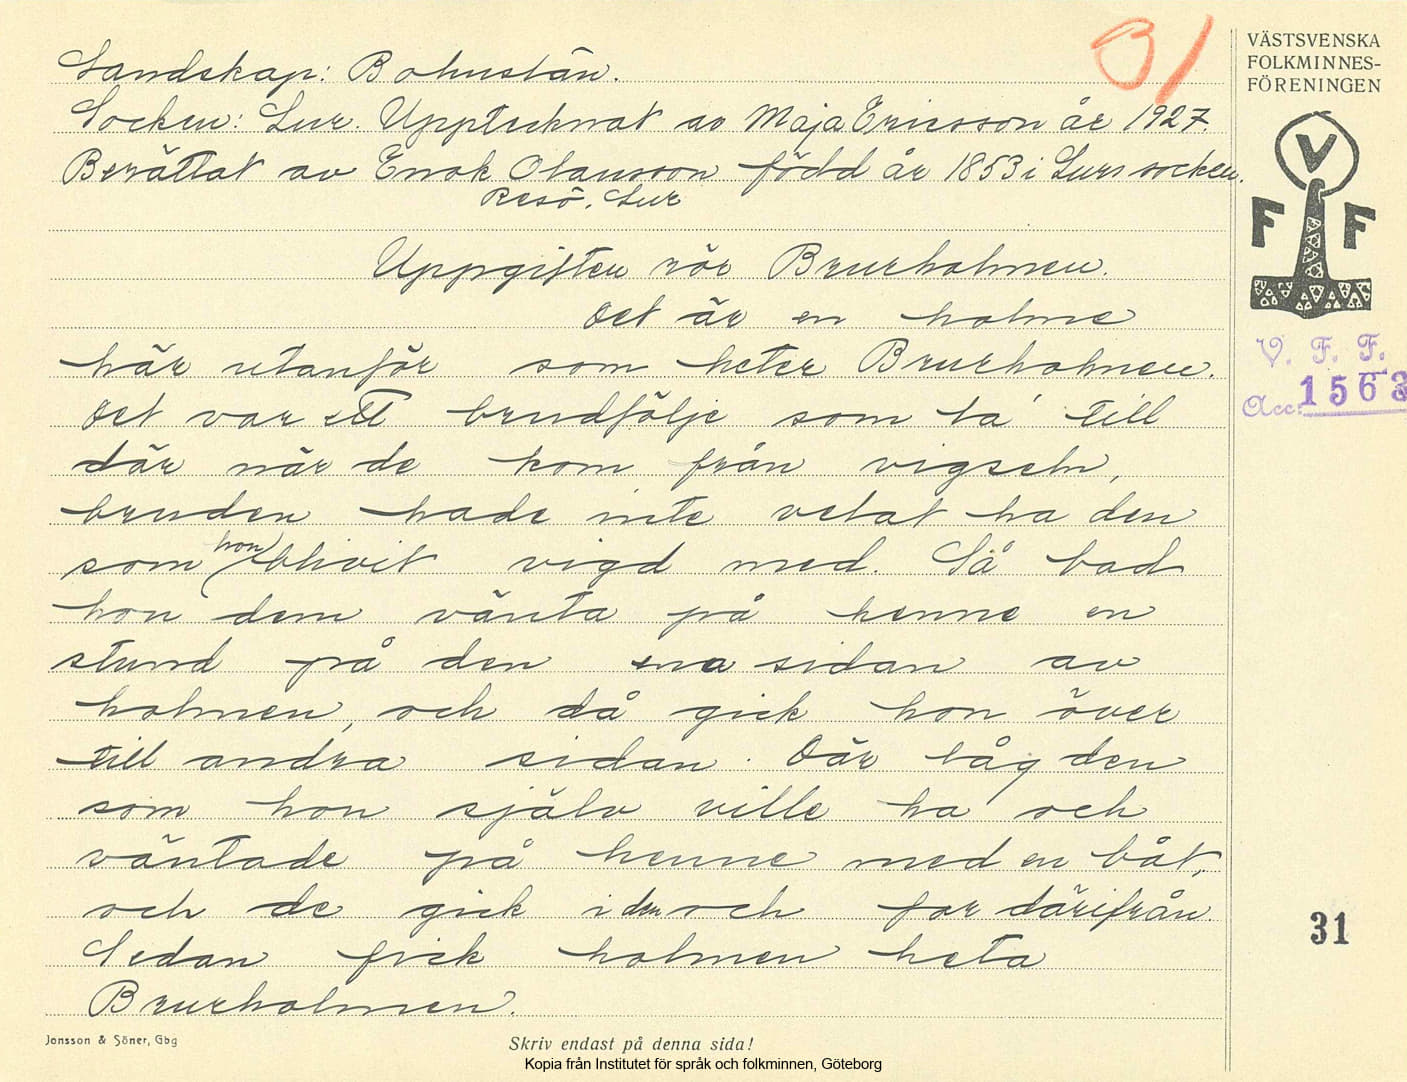 Landskap: Bohuslän.
Socken: Lur. Upptecknat av Maja Ericsson år 1927.
Berättat av Enok Olausson född år 1853 i Lurs socken.
Resö. Lur
31
Uppgiften rör Brurholmen.
Det är en holme
här utanför som heter Brurholmen.
Det var ett brudfölje som la' till
där när de kom från vigseln,
bruden hade inte velat ha den
som hon blivit vigd med. Så bad
hon dem vänta på henne en
stund på den ena sidan av
holmen, och då gick hon över
till andra sidan. Där låg den
som hon själv ville ha och
väntade på henne med en båt,
och de gick i den och for därifrån.
Sedan fick holmen heta
Brurholmen.
VÄSTSVENSKA
FOLKMINNES-
FÖRENINGEN
V
F F
V. F. F.
Acc. 1563
31
Jonsson & Söner, Gbg
Skriv endast på denna sida!
Kopia från Institutet för språk och folkminnen, Göteborg